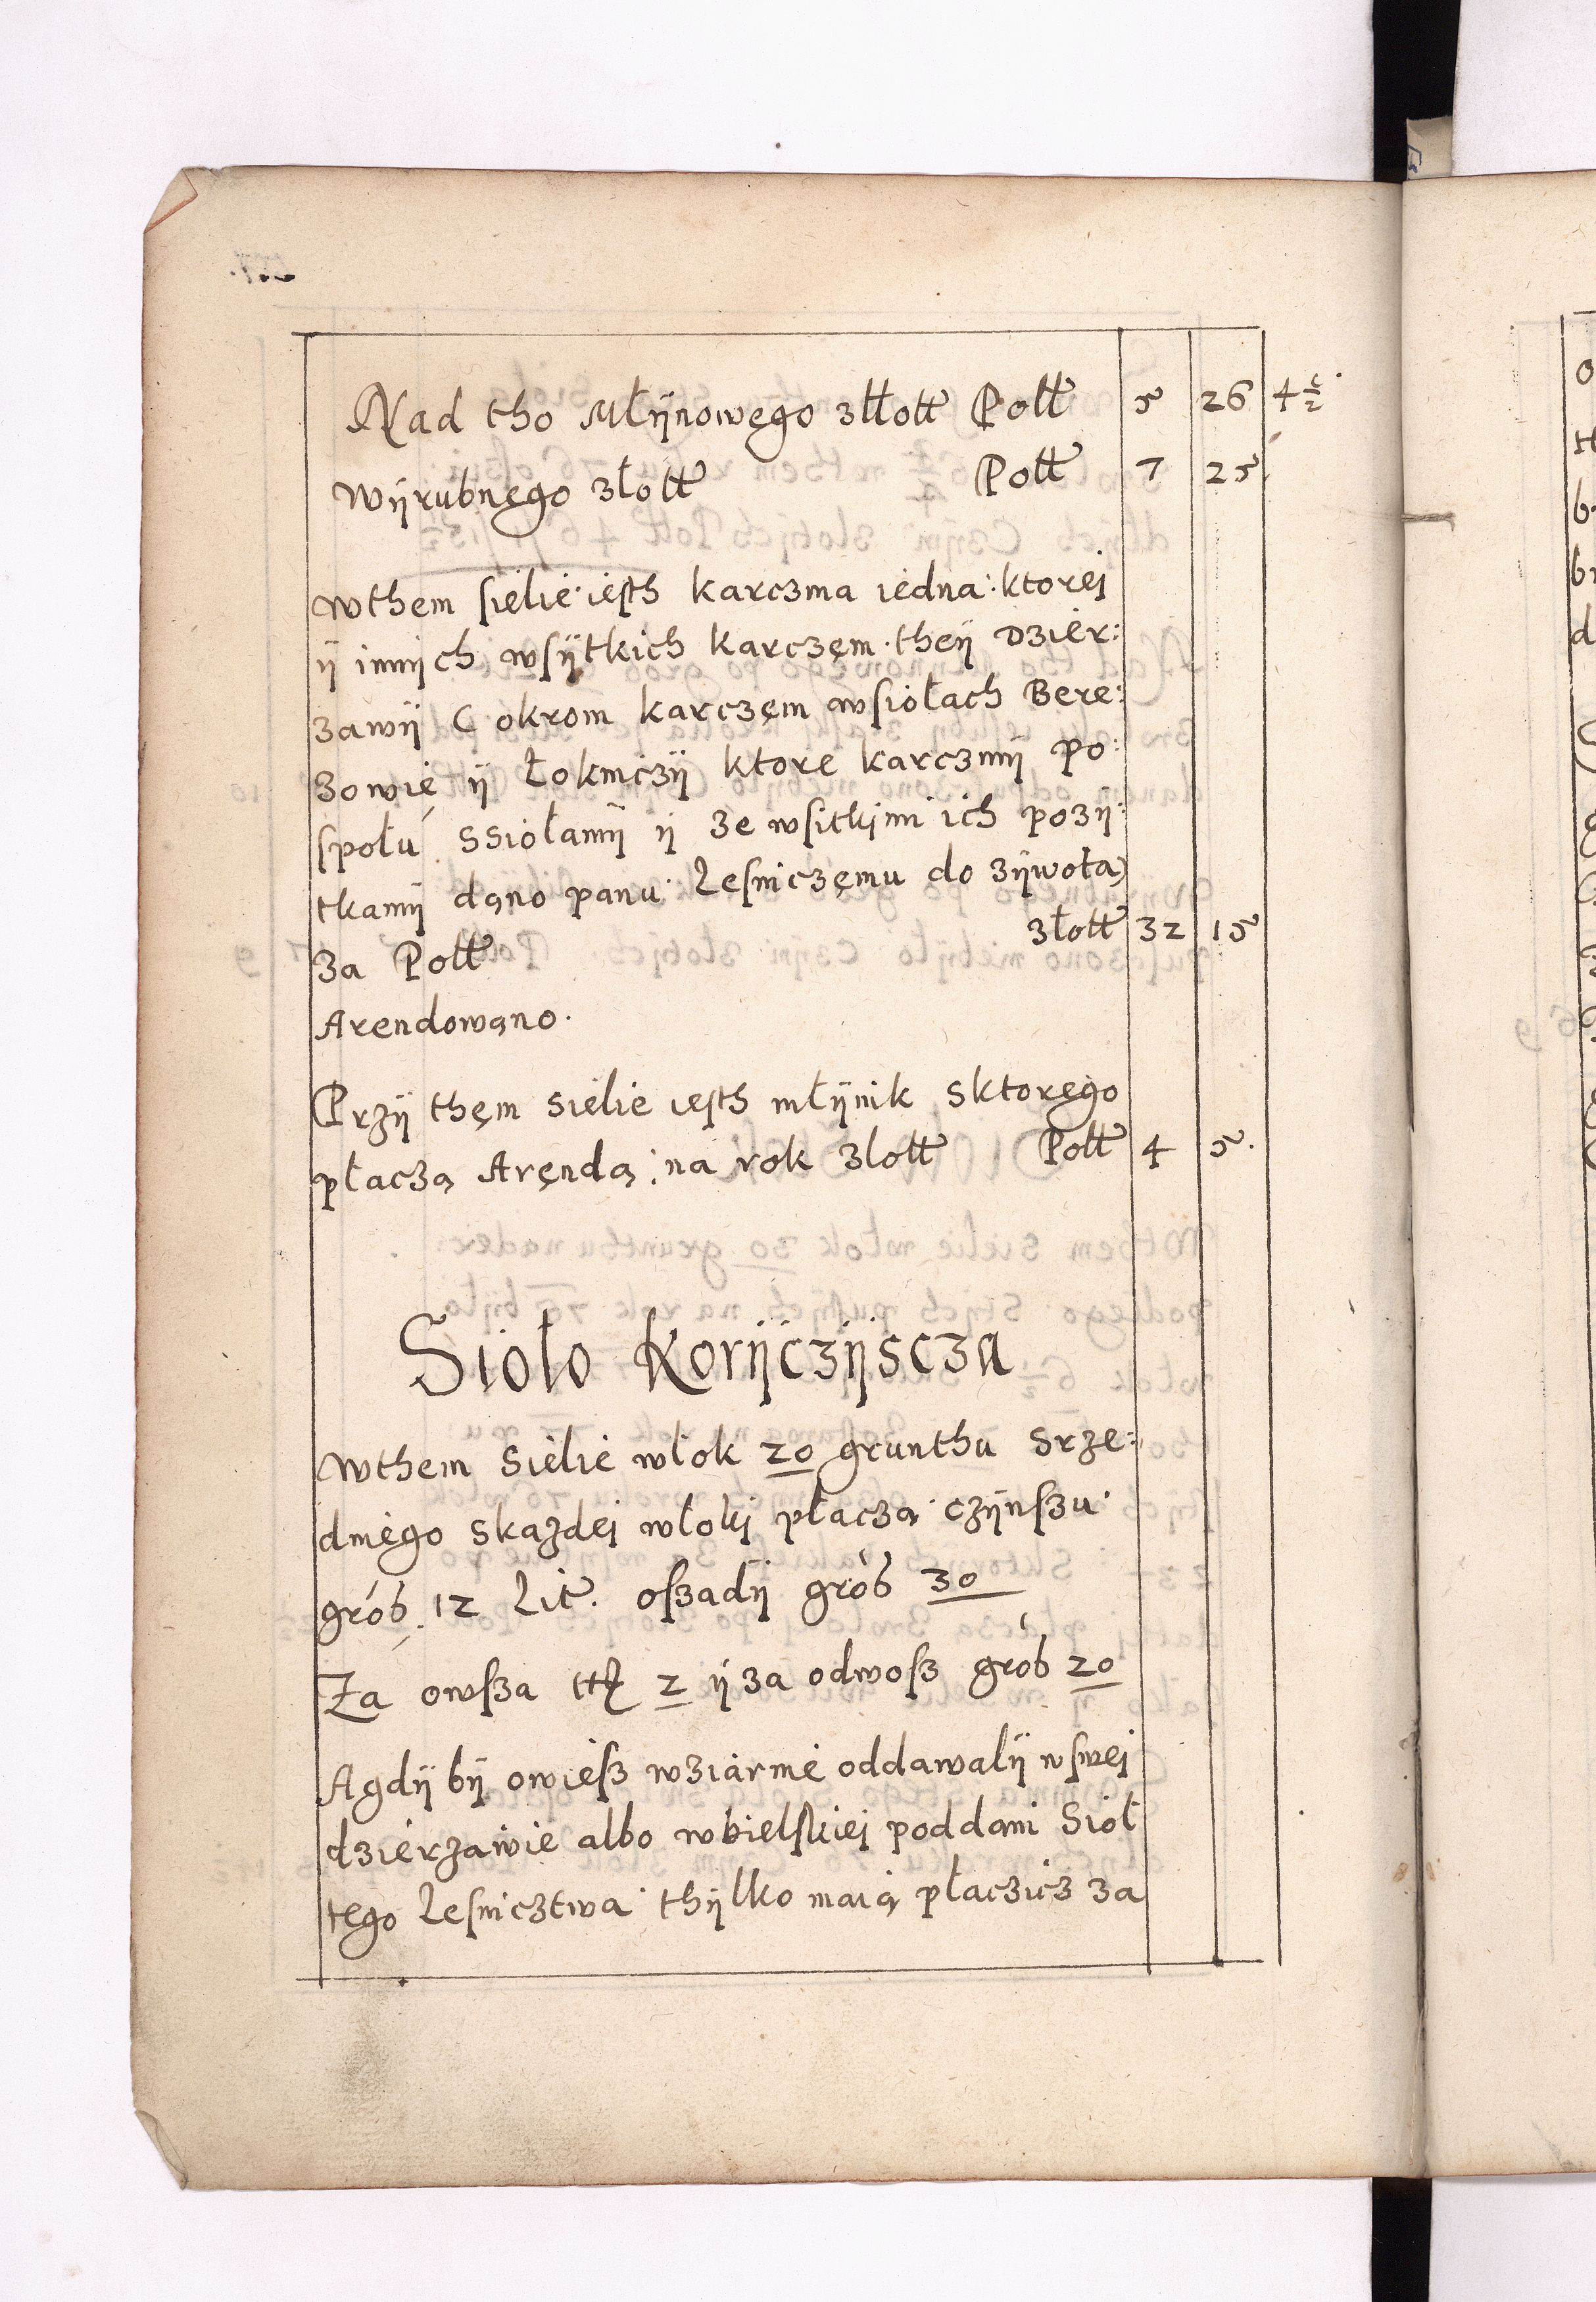 Nad tho Młÿnowęgo złłotł Połł 5 26 4½
Wÿrubnęgo złotł Połł 7 25
Wthem sielie iesth karczma iedna: ktorej
ÿ innÿch wsÿtkich karczęm theÿ Dzier:
zawÿ ( okrom karczęm wsiołach Bere:
zowie ÿ Łoknıczÿ ktore karczmÿ po:
społu ssiołamÿ ÿ ze wsitkimi ich pozÿ:
tkamÿ dąno panu Lesniczęmu do zÿwota)
za Połł złotł 32 15
Arendowąno.
Przÿ thęm sielie iesth młÿnik sktoręgo
płaczą Aręndą: na rok złotł Połł 4 5.
Sioło Korÿczÿscza
Wthem Sielie włok 20 grunthu srze:
dnięgo skazdej włoki płaczą czÿnszu
grob 12 Lit. oszadÿ grob 30
Za owsza 2 ÿ za odwosz grob 20
Agdÿ bÿ owiesz wziarnie oddawalÿ wswej
dzierzawie albo wbielskiej poddani Sioł
tęgo Lesnicztwa thÿlko maią płaczicz za